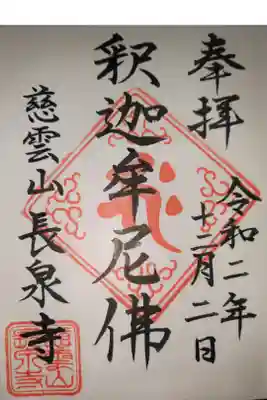 奉拝
令和二年
十二月二日
釈迦牟尼佛
慈雲山長泉寺